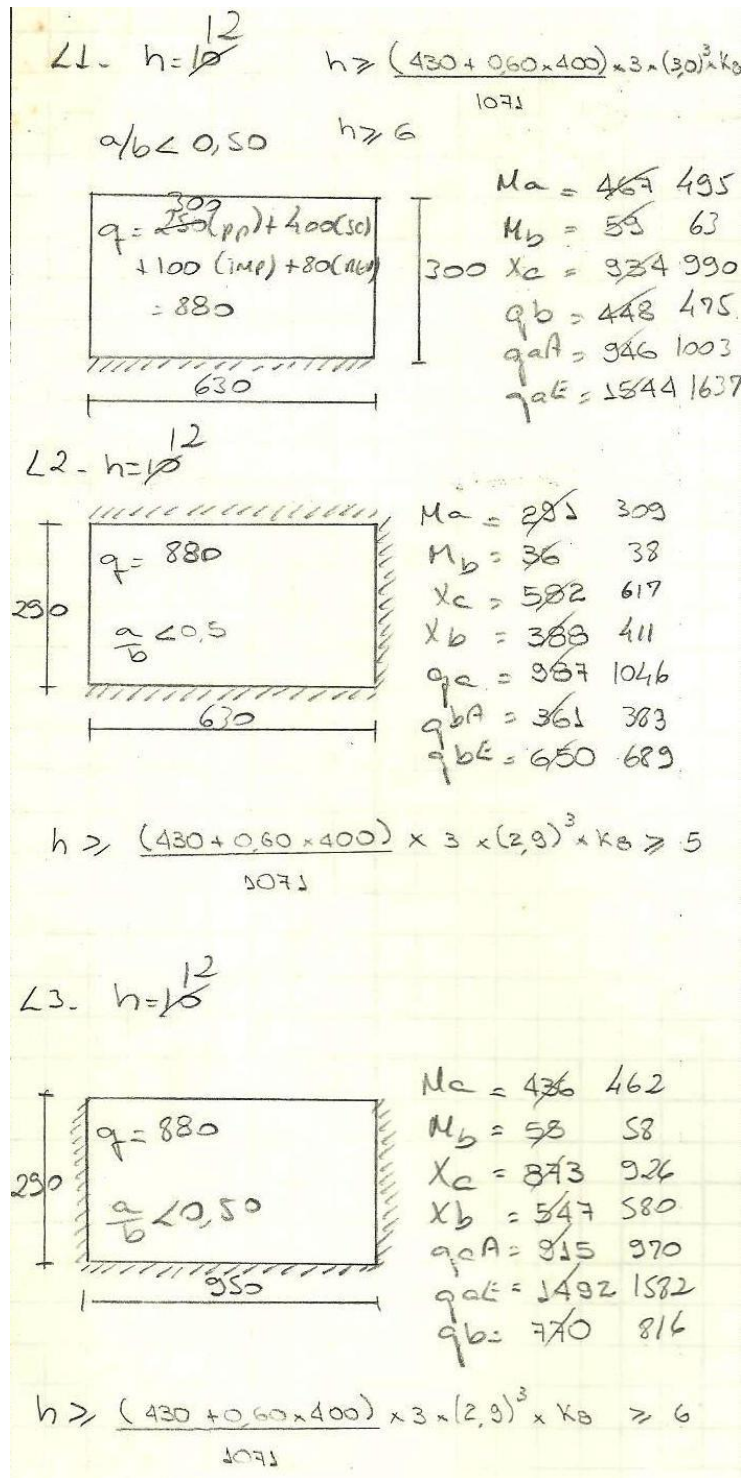 L1- h=10 12 h ≥ (430 + 0,60 × 400) × 3 × (3,0)³ × K8
1071
a/b < 0,50 h ≥ 6
300
q = 250 (pp) + 400 (sc)
+ 100 (imp) + 80 (rev)
= 880
300
630
Ma = 467 495
Mb = 59 63
Xa = 934 990
qb = 448 475
qaA = 946 1003
qaE = 1544 1637
L2- h=10 12
q = 880
a/b < 0,5
290
630
Ma = 291 309
Mb = 36 38
Xa = 582 617
Xb = 388 411
qa = 987 1046
qbA = 361 383
qbE = 650 689
h ≥ (430 + 0,60 × 400) × 3 × (2,9)³ × K8 ≥ 5
1071
L3- h=10 12
q = 880
a/b < 0,50
290
950
Ma = 436 462
Mb = 58 58
Xa = 873 926
Xb = 547 580
qaA = 915 970
qaE = 1492 1582
qb = 770 816
h ≥ (430 + 0,60 × 400) × 3 × (2,9)³ × K8 ≥ 6
1071